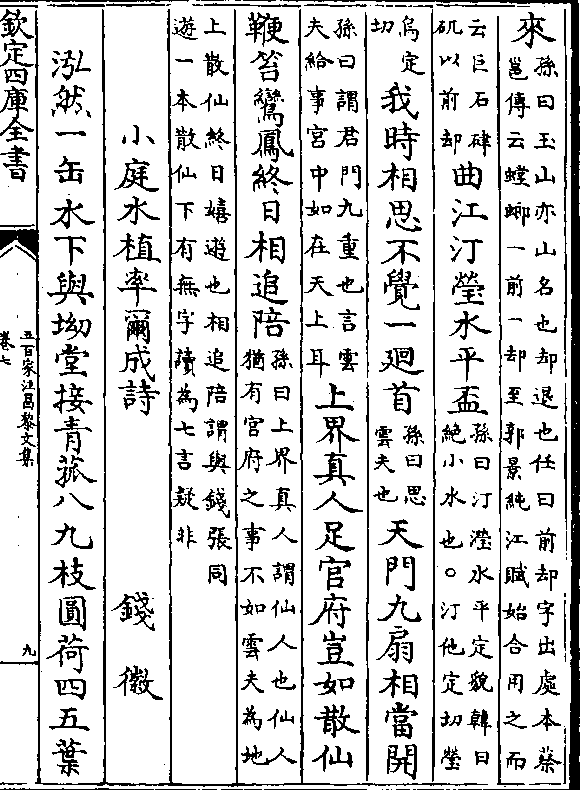 來孫曰玉山亦山名也却退也任曰前却字出處本蔡
邕傳云螳螂一前一却至郭景純江賦始合用之而
云巨石硉
矶以前却曲江汀瑩水平盃孫曰汀瀅水平定貌韓曰
絶小水也○汀他定切瑩
烏定
切我時相思不覺一廻首孫曰思
雲夫也天門九扇相當開
孫曰謂君門九重也言雲
夫給事宮中如在天上耳上界真人足官府豈如散仙
鞭笞鸞鳳終日相追陪孫曰上界真人謂仙人也仙人
猶有官府之事不如雲夫為地
上散仙終日嬉遊也相追陪謂與錢張同
遊一本散仙下有無字讀為七言疑非
小庭水植率爾成詩 錢徽
泓然一缶水下與坳堂接青菰八九枝圓荷四五葉
欽定四庫全書
五百家注昌黎文集
卷七
九